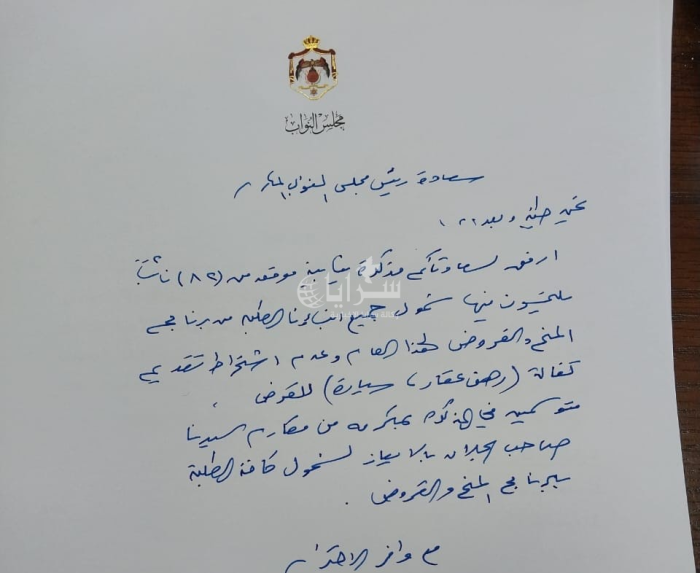 مجلس النواب
سعادة رئيس مجلس النواب المكرم
تحية طيبة وبعد ،،،
ارفق لسعادتكم مذكرة نيابية موقعه من (٨٢) نائباً
يلتمسون فيها شمول جميع ابناؤنا الطلبه من برنامجي
المنح والقروض لهذا العام وعدم اشتراط تقديم
كفالة (رهن عقار، سيارة) للقرض
متوسمين في المذكرة بمكرمه من مكارم سيدنا
صاحب الجلالة بالايعاز لشمول كافة الطلبة
ببرنامجي المنح والقروض .
مع وافر الاحترام
سرايا